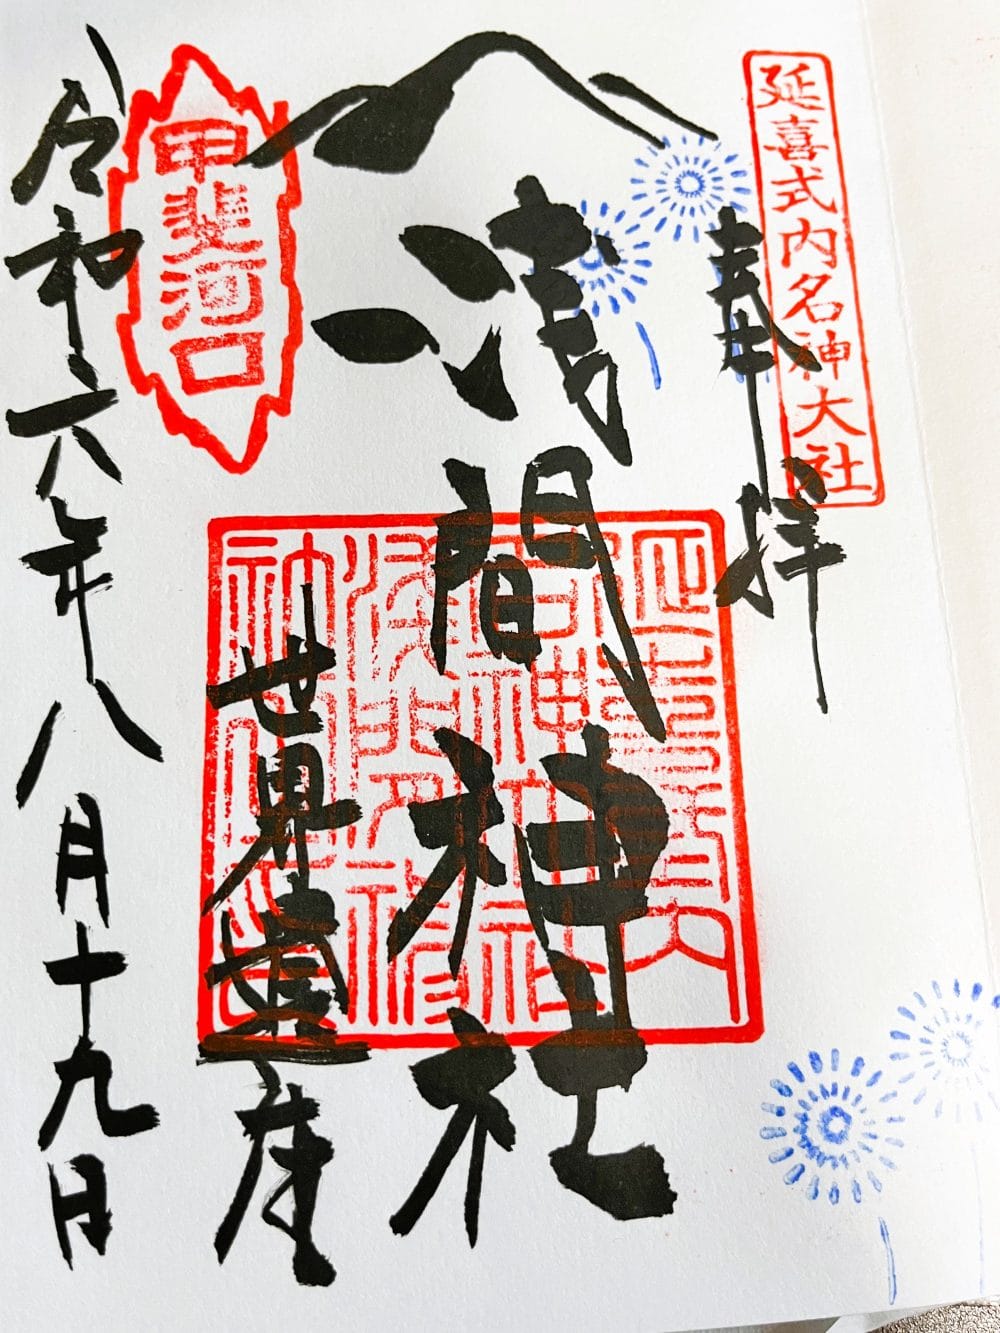 延喜式内名神大社
奉拝
浅間神社
世界遺産
甲斐河口
令和六年八月十九日